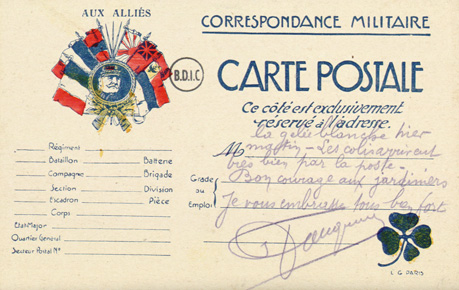 AUX ALLIÉS
B.D.I.C
CORRESPONDANCE MILITAIRE
CARTE POSTALE
Ce côté est exclusivement
réservé à l'adresse.
la gelée blanche hier
M matin - Les colis arrivent
très bien par la poste -
Bon courage aux jardiniers
Je vous embrasse tous bien fort
Régiment
Bataillon Batterie
Campagne Brigade
Section Division
Escadron Pièce
Corps
Etat-Major
Quartier Général
Secteur Postal No
Grade
ou
Emploi
L G PARIS